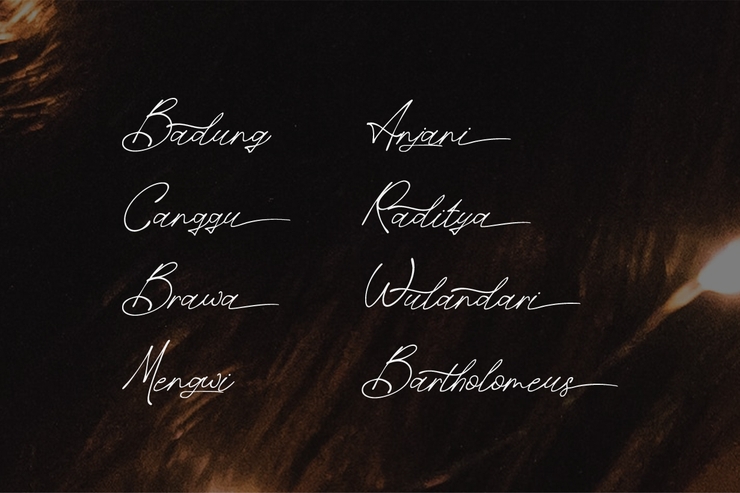 Badung
Canggu
Brawa
Mengwi
Anjani
Raditya
Wulandari
Bartholomeus